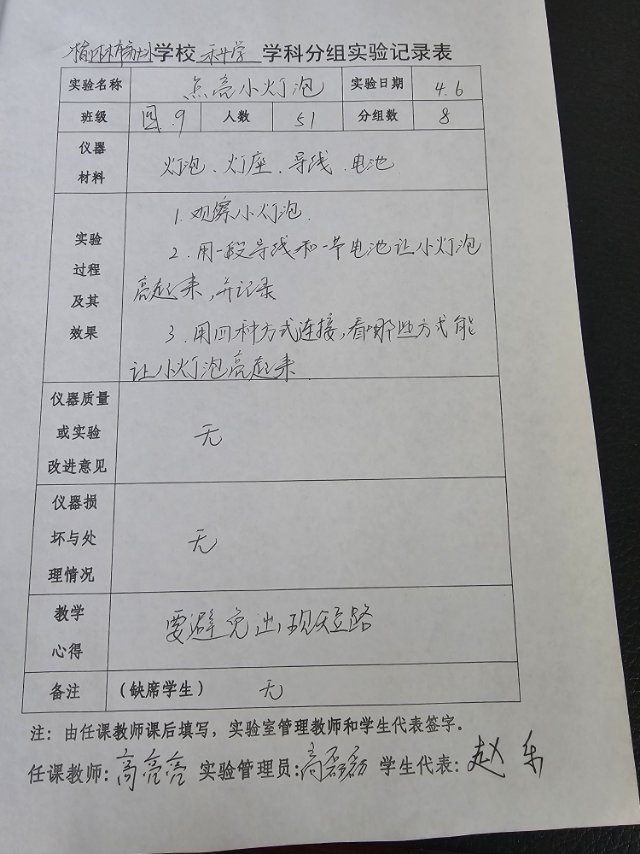 学校 科学 学科分组实验记录表
实验名称 点亮小灯泡 实验日期 4.6
班级 四.9 人数 51 分组数 8
仪器
材料
灯泡、灯座、导线、电池
实验
过程
及其
效果
1.观察小灯泡.
2.用一段导线和一节电池让小灯泡
亮起来,并记录
3.用四种方式连接,看哪些方式能
让小灯泡亮起来.
仪器质量
或实验
改进意见
无
仪器损
坏与处
理情况
无
教学
心得
要避免出现短路
备注 (缺席学生) 无
注：由任课教师课后填写，实验室管理教师和学生代表签字。
任课教师:高亮亮 实验管理员:高磊磊 学生代表:赵乐